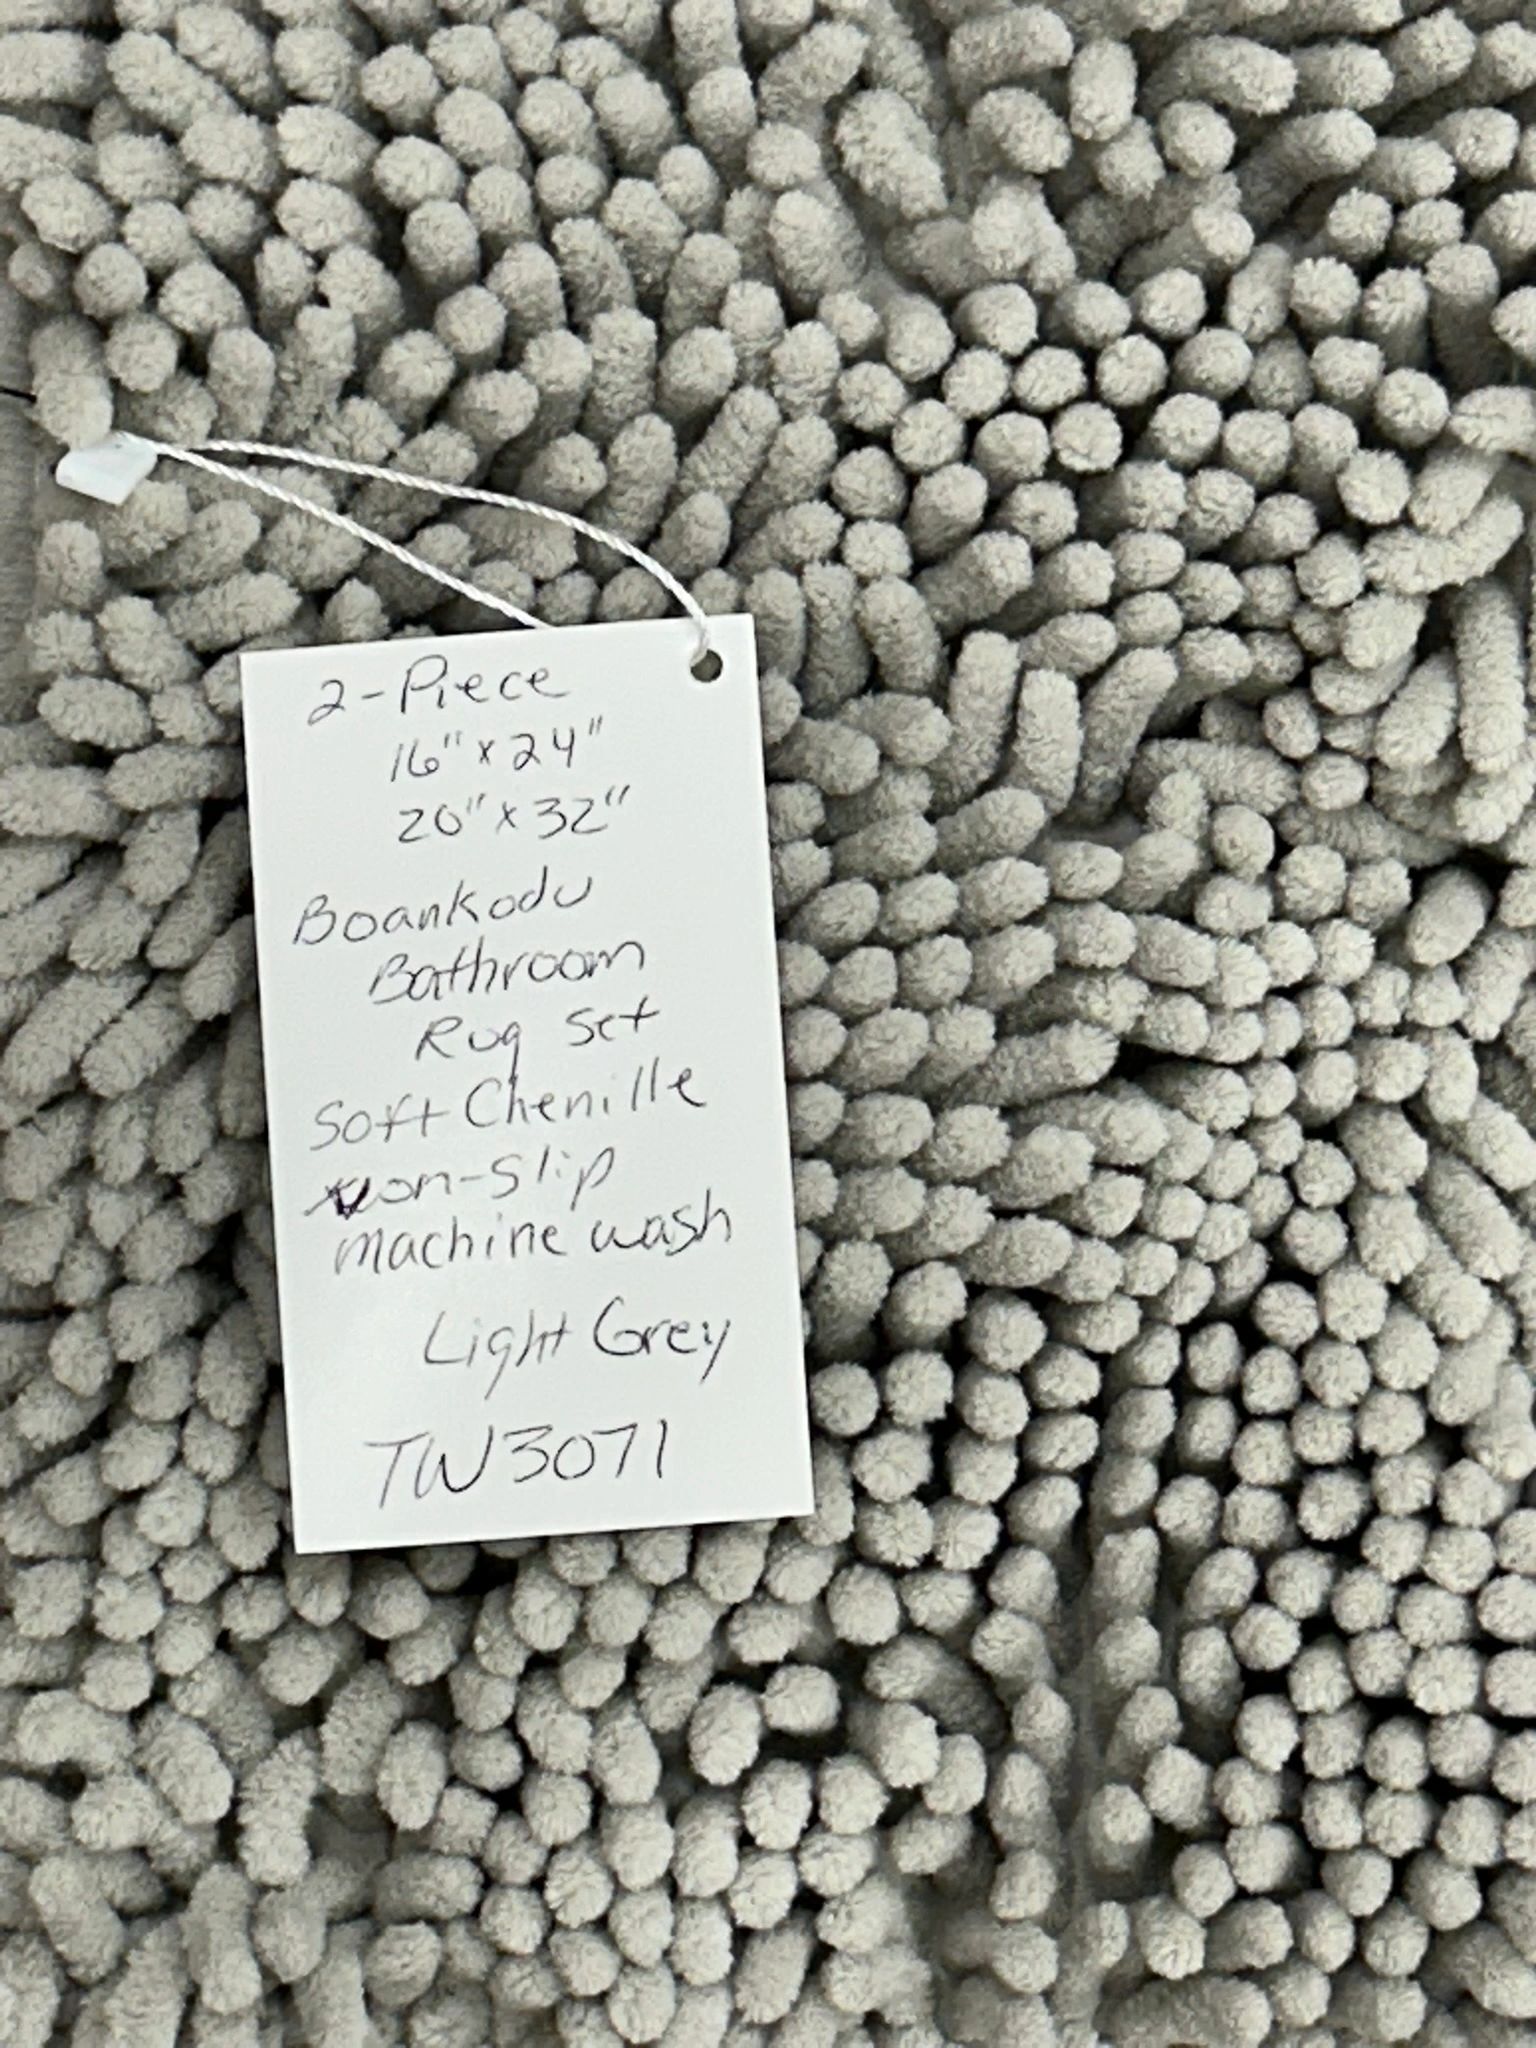 2-Piece
16" x 24"
20" x 32"
Boankodu
Bathroom
Rug Set
Soft Chenille
non-slip
machine wash
Light Grey
TW3071